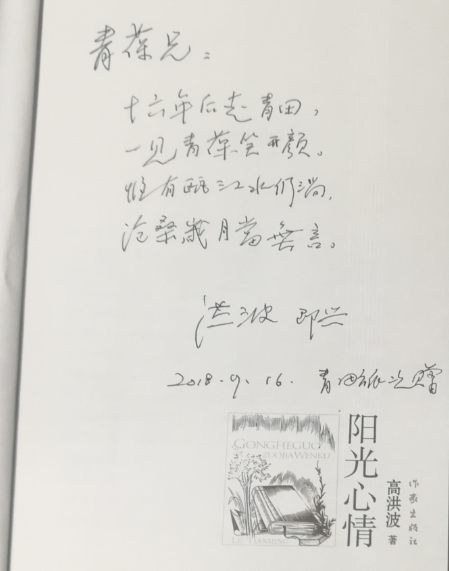 青葆兄：
十六年后走青田，
一见青葆笑开颜。
惟有瓯江水仍淌，
沧桑岁月當無言。
洪波 即兴
2018.9.16. 青田 赠
GONGHEGUO
ZUOJIA WENKU
阳光心情
高洪波 著
作家出版社